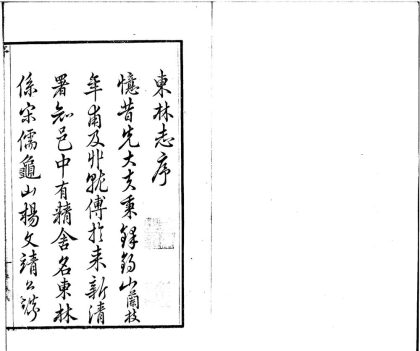 東林志序
憶昔先大夫秉鐸錫山蘭枝
年甫及丱熟傅於来新清
署知邑中有精舍名東林
係宋儒龜山楊文靖公